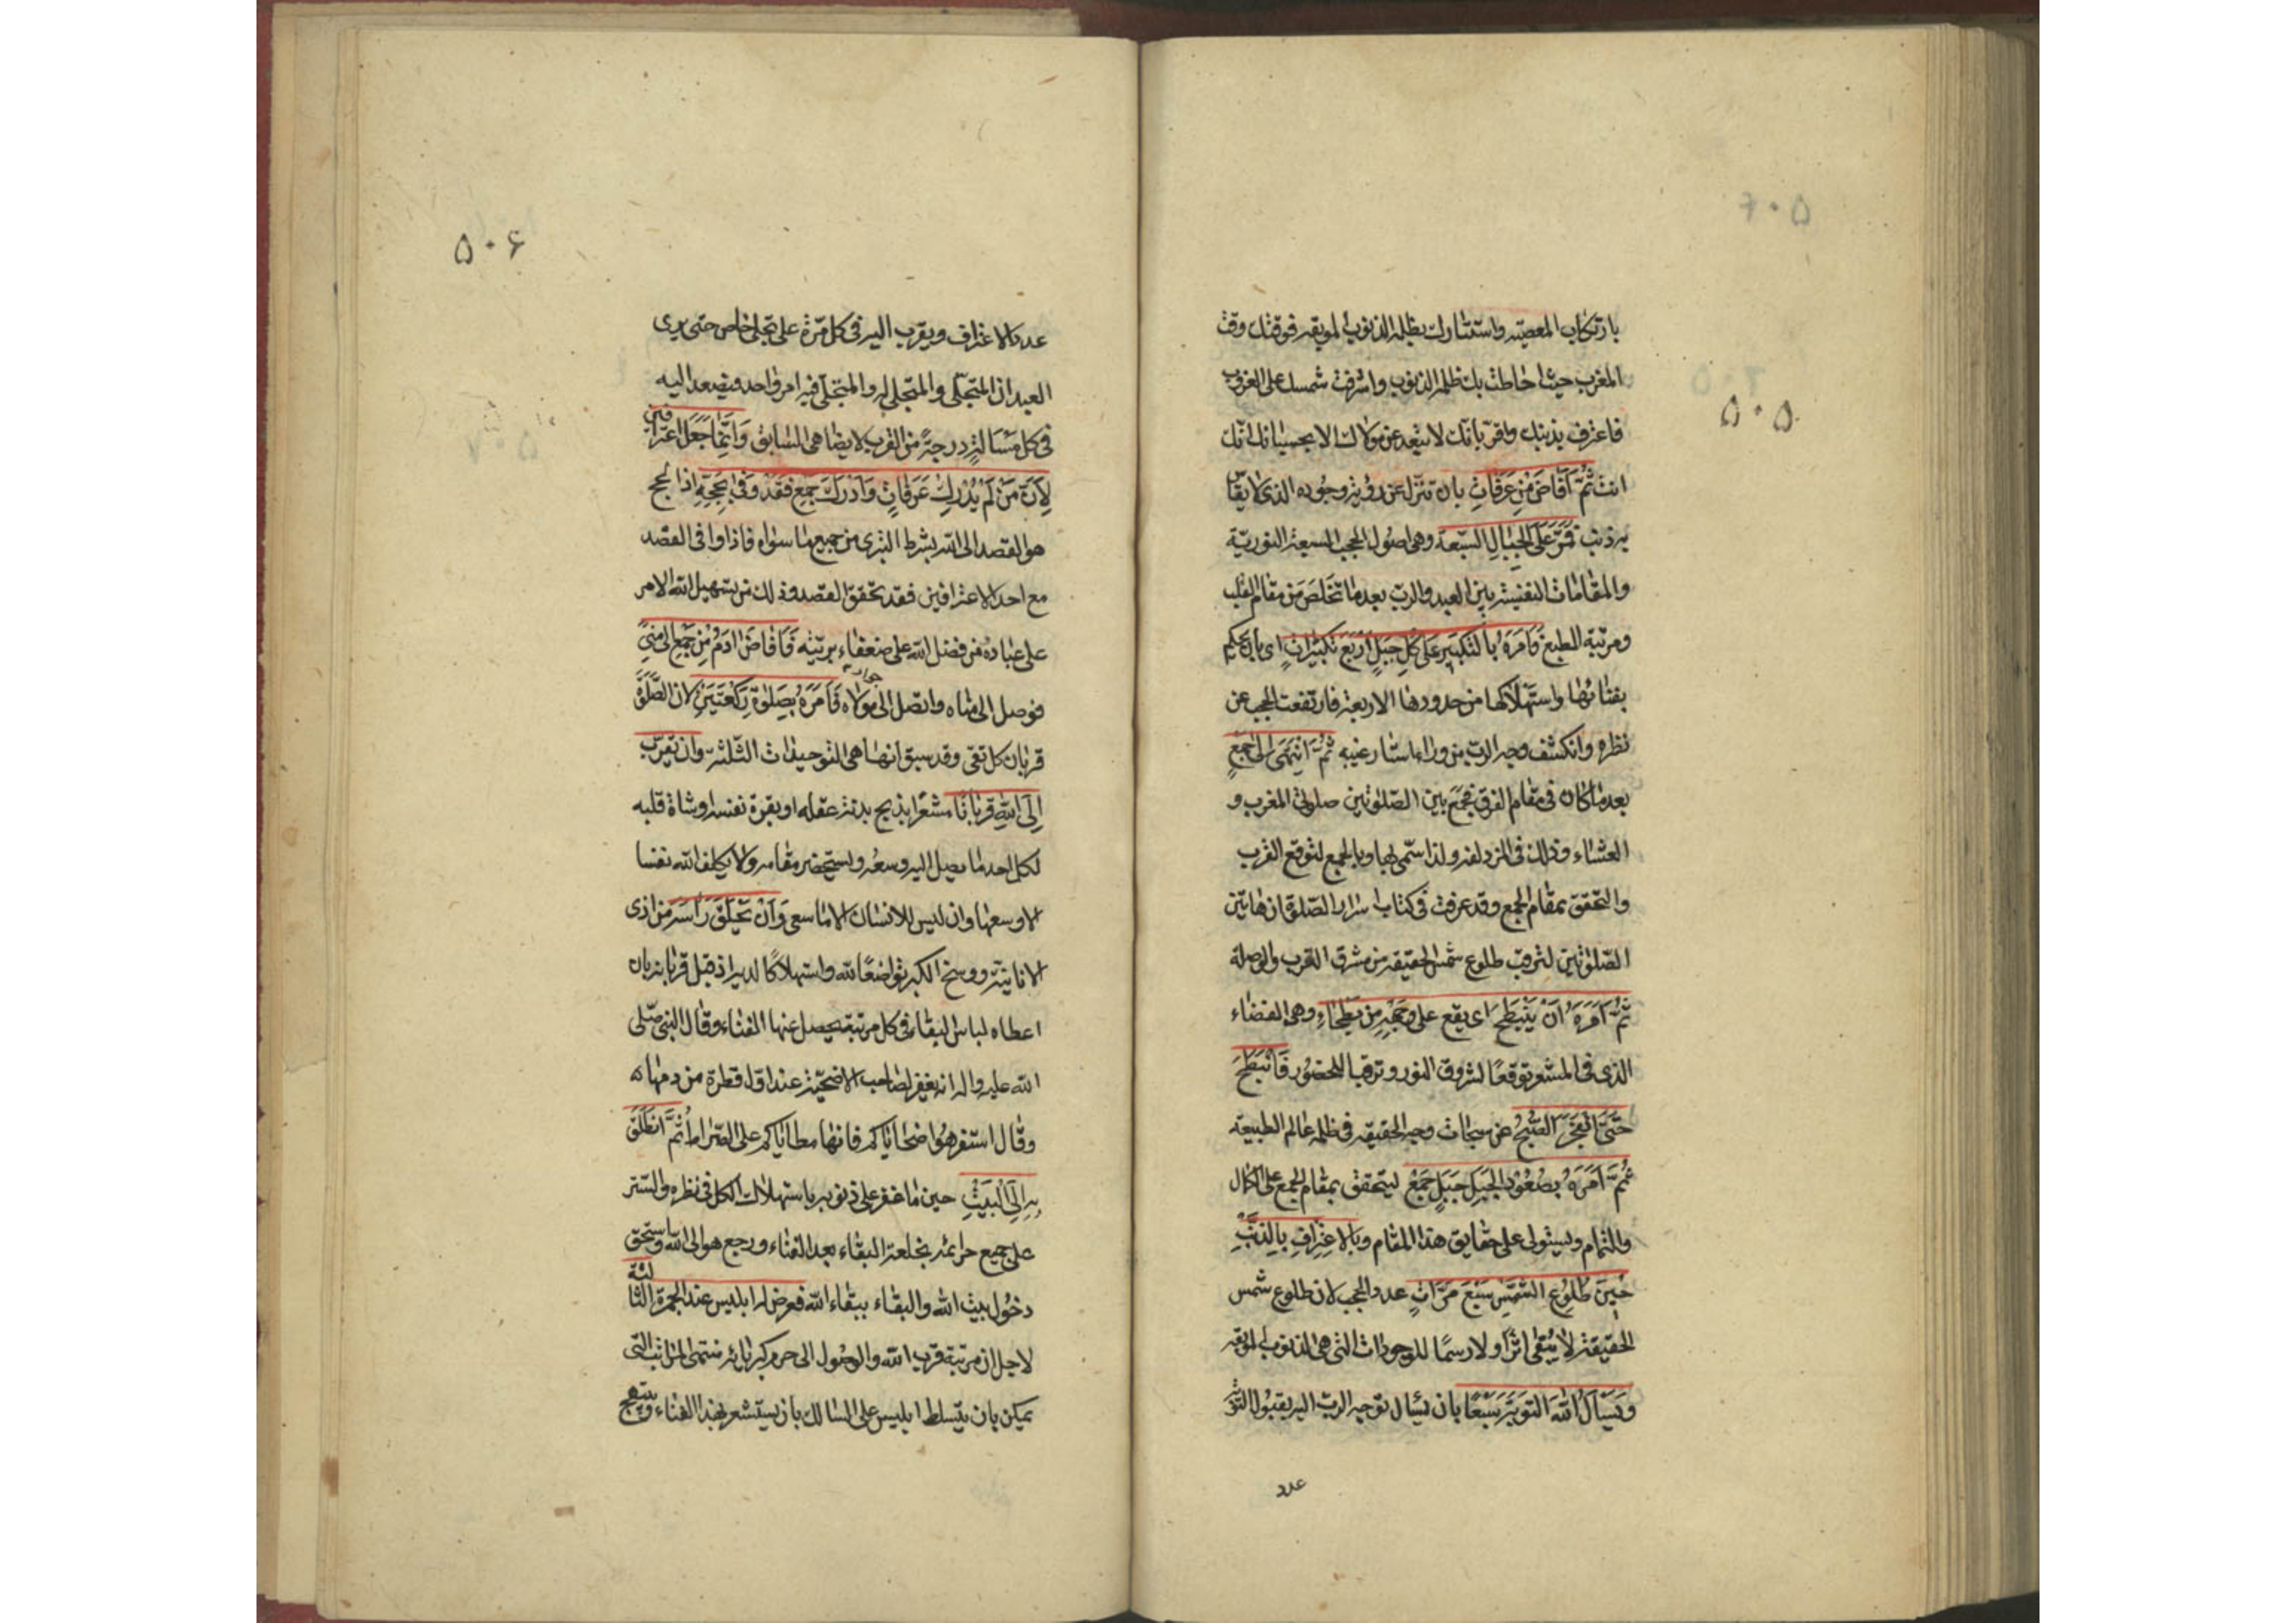 ۵۰۵
بارتكاب المعصية واستتارك بظلمة الذنوب الموبقة فوقتك وقت
المغرب حيث احاطت بك ظلمة الذنوب واشرفت شمسك على الغروب
فاعترف بذنبك واقرّ بانّك لا تبعد عن مولاك الا بحسبانك انّك
انت ثُمَّ اَفَاضَ مِن عَرَفَاتٍ بان تنزّل عن رؤية وجوده الذى لا يقاس
به ذنب فَمَرَّ عَلَى الجِبَالِ السَّبعَة وهى اصول الحجب السبعة النوريّة
والمقامات النفيسة بين العبد والربّ بعد ما تخلّص من مقام القلب
ومرتبة الطبع وَاَمَرَهُ بِالتكبيرِ عَلى كلِّ جَبَلٍ اَربَعَ تكبيراتٍ اى بان يحكم
بفنائها واستهلاكها من حدودها الاربعة فارتفعت الحجب عن
نظره وانكشف وجه الربّ من وراء استار غيبه ثُمَّ انتَهى اِلى جَمعٍ
بعد ما كان فى مقام الفرق فجمع بين الصّلوتين صلوتى المغرب و
العشاء وذلك فى المزدلفة ولذا سمّى بها وبالجمع لتوقع القرب
والتحقق بمقام الجمع وقد عرفت فى كتاب اسرار الصّلوة ان هاتين
الصّلوتين لترقب طلوع شمس الحقيقة من مشرق القرب والوصلة
ثُمَّ اَمَرَهُ اَن يَنبَطِحَ اى يقع على وجهه من بَطحَاءِ وهى الفضاء
الذى فى المشعر توقعًا لشروق النور وترقبا للحضور فَانبَطَحَ
حَتَّى انفَجَرَ الصُّبحُ عن سبحات وجه الحقيقة فى ظلمة عالم الطبيعة
ثُمَّ اَمَرَهُ بِصُعُودِ الجَبَلِ جَبَلِ جَمعٍ ليتحقق بمقام الجمع على الكمال
والتمام ويستولى على حقايق هذا المقام وَبِالاعتِرَافِ بِالذَّنبِ
حِينَ طُلُوعِ الشَّمسِ سَبعَ مَرَّاتٍ عدد الحجب لان طلوع شمس
الحقيقة لا يُبقى اثرًا ولا رسمًا للوجودات التى هى الذنوب الموبقة
وَيَسأَلَ اللهَ التَوبَةَ سَبعًا بان يسأل توجه الربّ اليه بقبول التوبة
عدد
۵۰۶
عدد الاعتراف ويقرب اليه فى كل مرّة على تجلى خاص حتى يرى
العبد ان المتجلّى والمتجلى له والمتجلّى فيه امر واحد ويصعد اليه
فى كل مسألةٍ درجةً من القرب لا يضاهى السّابق وَاِنَّمَا جَعَلَ اعتِرافَين
لِاَنَّ مَن لَم يُدرِك عَرَفَاتٍ وَاَدرَكَ جَمع فَقَد وَفى بِحَجِّهِ اذ الحج
هو القصد الى الله بشرط التبرى من جميع ما سواه فاذا وافى القصد
مع احد الاعترافين فقد تحقق القصد وذلك من تسهيل الله الامر
على عباده فمن فضل الله على ضعفاء بريته فَاَفَاضَ ادَمُ مِن جَمعٍ اِلى مِنى
فوصل الى مناه واتصل الى جوار مولاه فَاَمَرَهُ بِصَلوةِ رَكعَتَينِ لان الصَّلوة
قربان كل تقى وقد سبق انها هى التوحيدات الثّلثة وان يقرّب
اِلَى اللهِ قربانًا مشعرًا بذبح بدنة عقله او بقرة نفسه او شاة قلبه
لكل احد ما يصل اليه وسعه ويستحضر مقامه ولا يكلف الله نفسا
الا وسعها وان ليس للانسان الا ما سعى وَاَن يَحلِقَ رَأسَه من اذى
الانانيّة ووسخ الكبر تواضعًا لله واستهلاكًا لديه اذ قبل قربانه بان
اعطاه لباس البقاء فى كل مرتبة يحصل عنها الفناء وقال النبى صلى
الله عليه واله انه يغفر لصاحب الاضحيّة عند اول قطرة من دمها
وقال استفرهوا ضحاياكم فانها مطاياكم على الصّراط ثُمَّ انطَلَقَ
بِهِ اِلَى البَيتِ حين ما غفر على ذنوبه باستهلاك الكل فى نظره والستر
على جميع جرائمه بخلعة البقاء بعد الفناء ورجع هو الى الله واستحق
دخُول بيت الله والبقاء ببقاء الله فعرض له ابليس عند الجمرة الثالثة
لاجل ان مرتبة قرب الله والوصُول الى حرم كبريائه منتهى المراتب التى
يمكن بان يتسلط ابليس على السّالك بان يستشعر بهذا الفناء ويبتهج